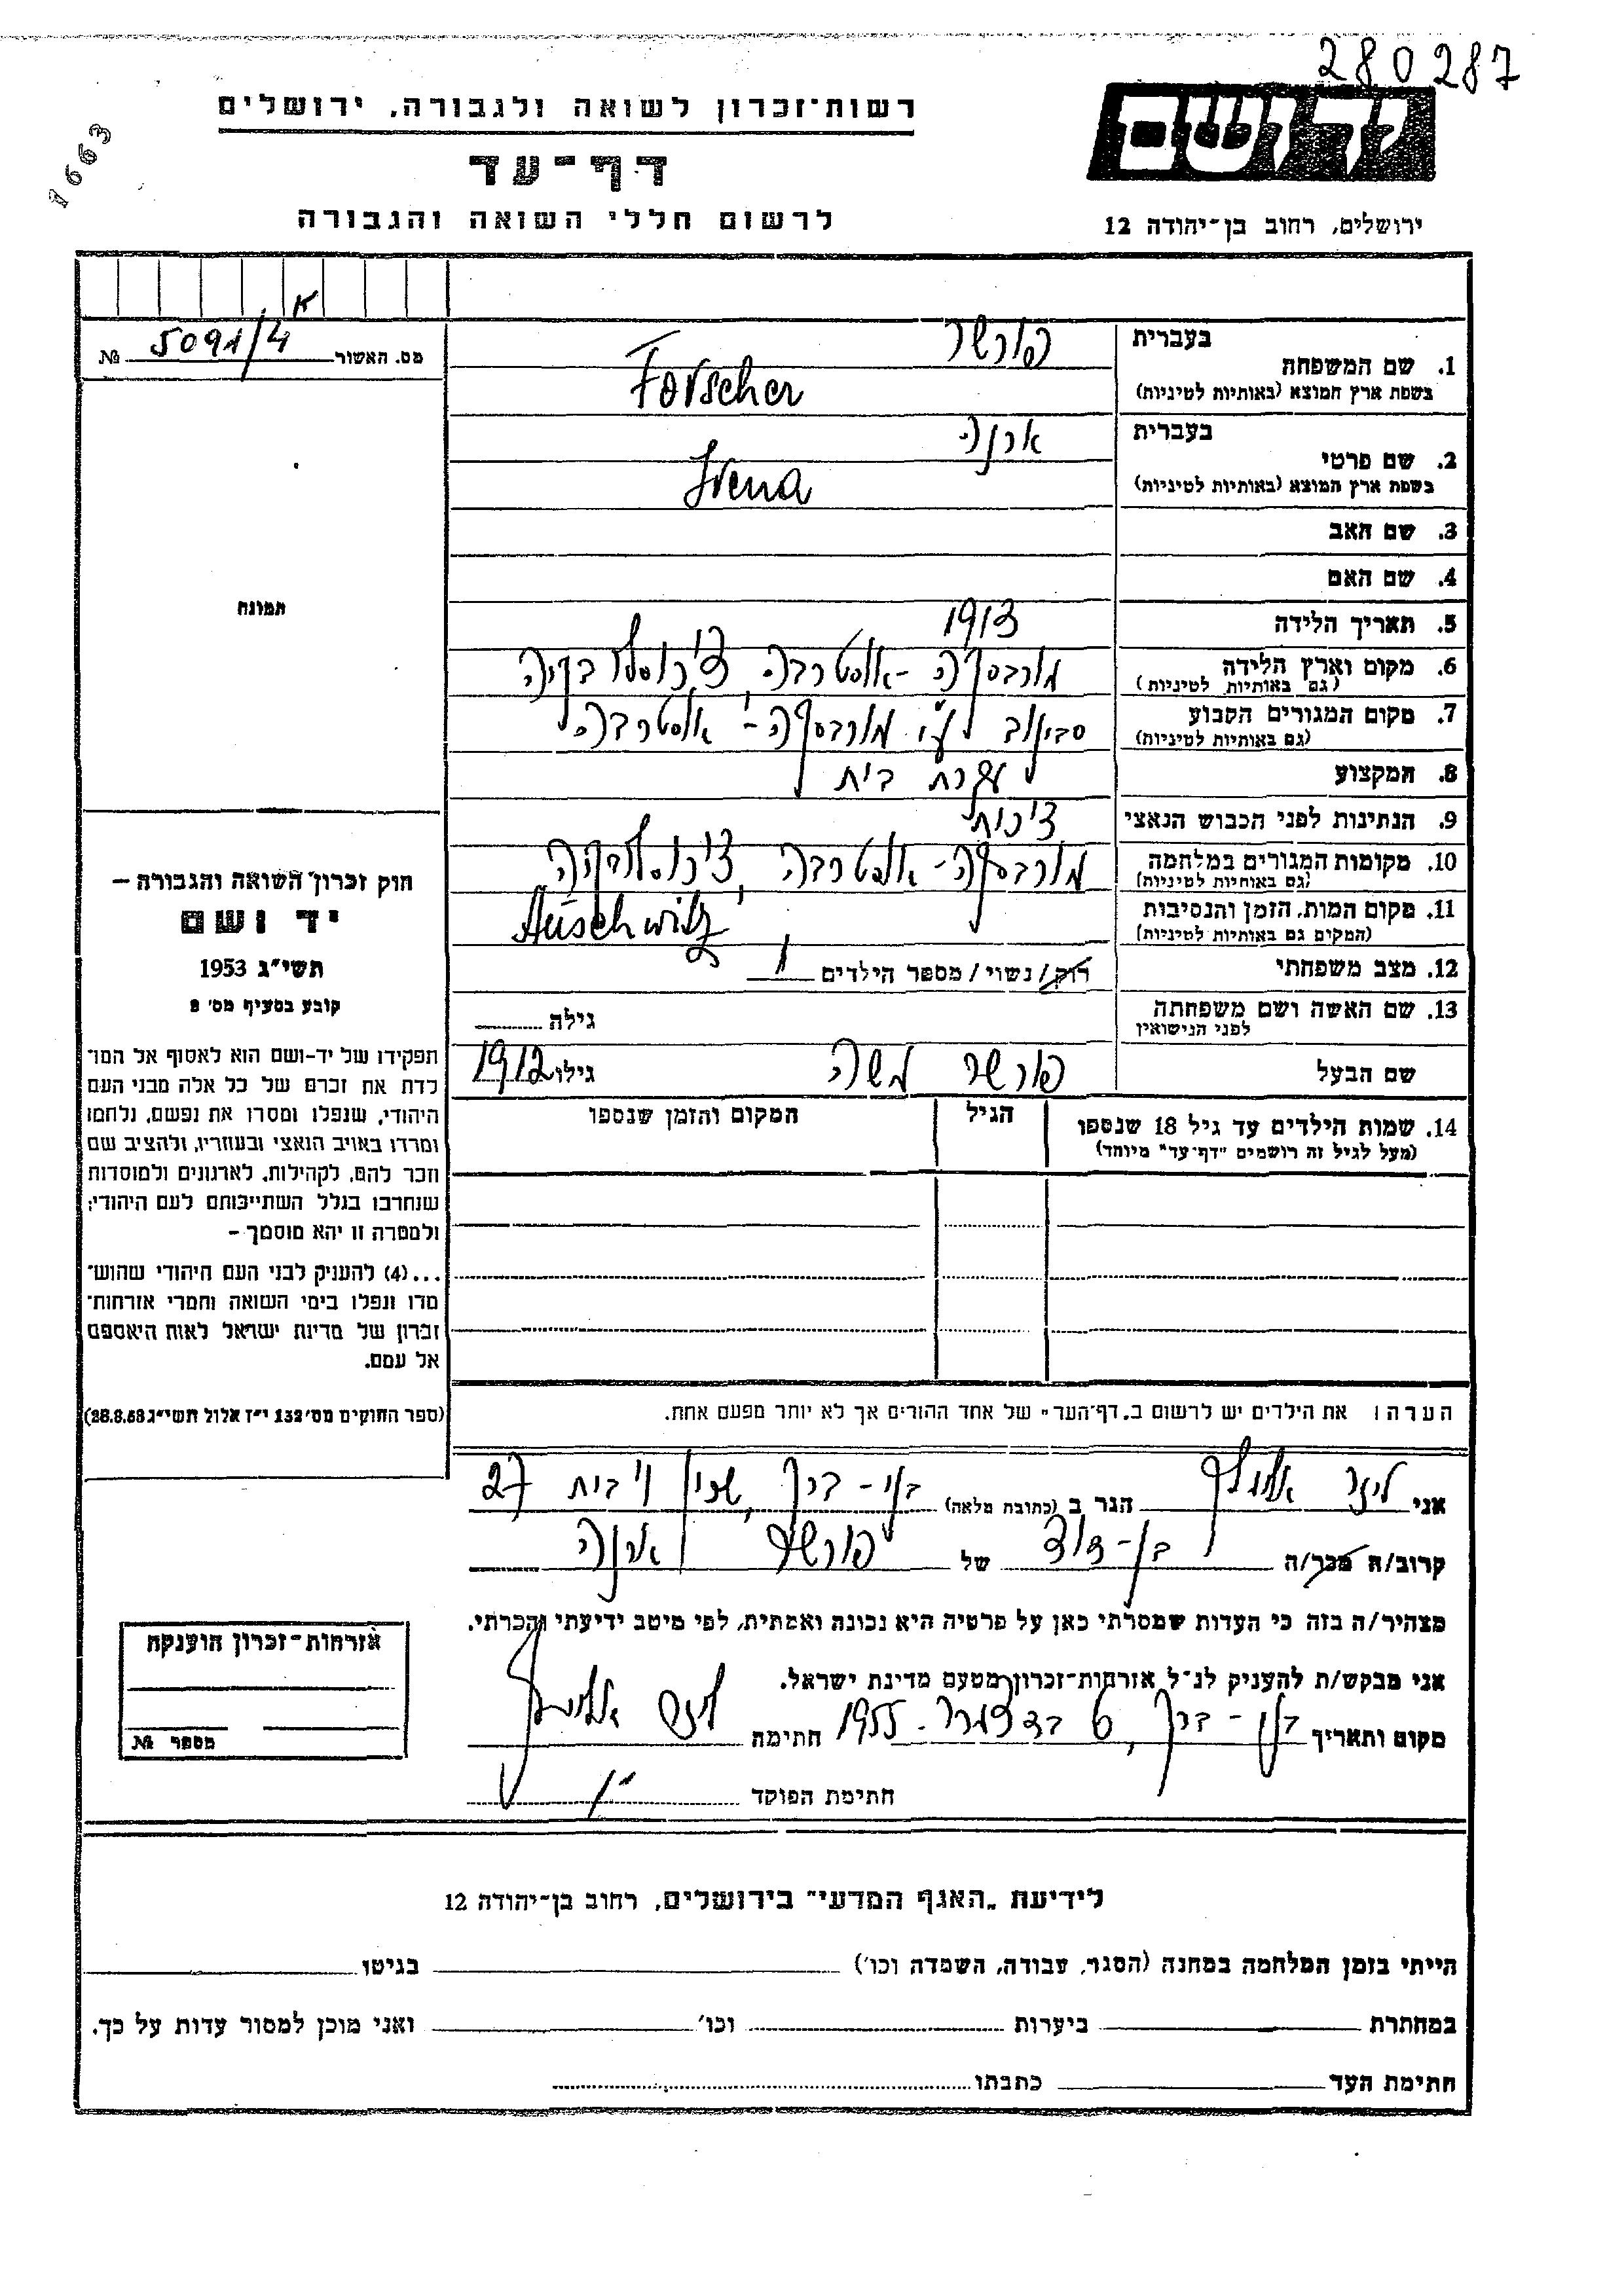 280287
1663
רשות־זכרון לשואה ולגבורה, ירושלים
דף־עד
לרשום חללי השואה והגבורה
ידושם
ירושלים, רחוב בן־יהודה 12
א
מס. האשור 5091/4 №
תמונה
1. שם המשפחה
בעברית פורשר
בשפת ארץ המוצא (באותיות לטיניות) Forscher
2. שם פרטי
בעברית ארנה
בשפת ארץ המוצא (באותיות לטיניות) Irena
3. שם האב
4. שם האם
5. תאריך הלידה 1913
6. מקום וארץ הלידה מורבסקה-אוסטרבה, צ'כוסלובקיה
(גם באותיות לטיניות)
7. מקום המגורים הקבוע ע"י מורבסקה-אוסטרבה
(גם באותיות לטיניות)
8. המקצוע עקרת בית
9. הנתינות לפני הכבוש הנאצי צ'כית
10. מקומות המגורים במלחמה מורבסקה-אוסטרבה, צ'כוסלובקיה
(גם באותיות לטיניות)
11. מקום המות, הזמן והנסיבות Auschwitz
(המקום גם באותיות לטיניות)
12. מצב משפחתי רוק/נשוי/מספר הילדים 1
13. שם האשה ושם משפחתה
לפני הנישואין
גילה
שם הבעל פורשר משה גילו 1912
14. שמות הילדים עד גיל 18 שנספו
(מעל לגיל זה רושמים "דף־עד" מיוחד)
הגיל
המקום והזמן שנספו
חוק זכרון השואה והגבורה –
יד ושם
תשי"ג 1953
קובע בסעיף מס' 2
תפקידו של יד-ושם הוא לאסוף אל המו־
לדת את זכרם של כל אלה מבני העם
היהודי, שנפלו ומסרו את נפשם, נלחמו
ומרדו באויב הנאצי ובעוזריו, ולהציב שם
וזכר להם, לקהילות, לארגונים ולמוסדות
שנחרבו בגלל השתייכותם לעם היהודי;
ולמטרה זו יהא מוסמך –
...(4) להעניק לבני העם היהודי שהוש־
מדו ונפלו בימי השואה והמרי אזרחות־
זכרון של מדינת ישראל לאות היאספם
אל עמם.
(ספר החוקים מס' 132 י"ז אלול תשי"ג 28.8.53)
הערה: את הילדים יש לרשום ב„דף־העד" של אחד ההורים אך לא יותר מפעם אחת.
אני הגר ב (כתובת מלאה) בני-דרך, בית 27
קרוב/ה מכר/ה בן-דוד של פורשר ארנה
מצהיר/ה בזה כי העדות שמסרתי כאן על פרטיה היא נכונה ואמתית, לפי מיטב ידיעתי והכרתי.
אני מבקש/ת להעניק לנ"ל אזרחות־זכרון מטעם מדינת ישראל.
מקום ותאריך בני-דרך, 6 בדצמבר 1955 חתימה
חתימת הפוקד
אזרחות־זכרון הוענקה
מספר №
לידיעת „האגף המדעי" בירושלים, רחוב בן־יהודה 12
הייתי בזמן המלחמה במחנה (הסגר, עבודה, השמדה וכו') בגיטו
במחתרת ביערות וכו' ואני מוכן למסור עדות על כך.
חתימת העד כתבתו